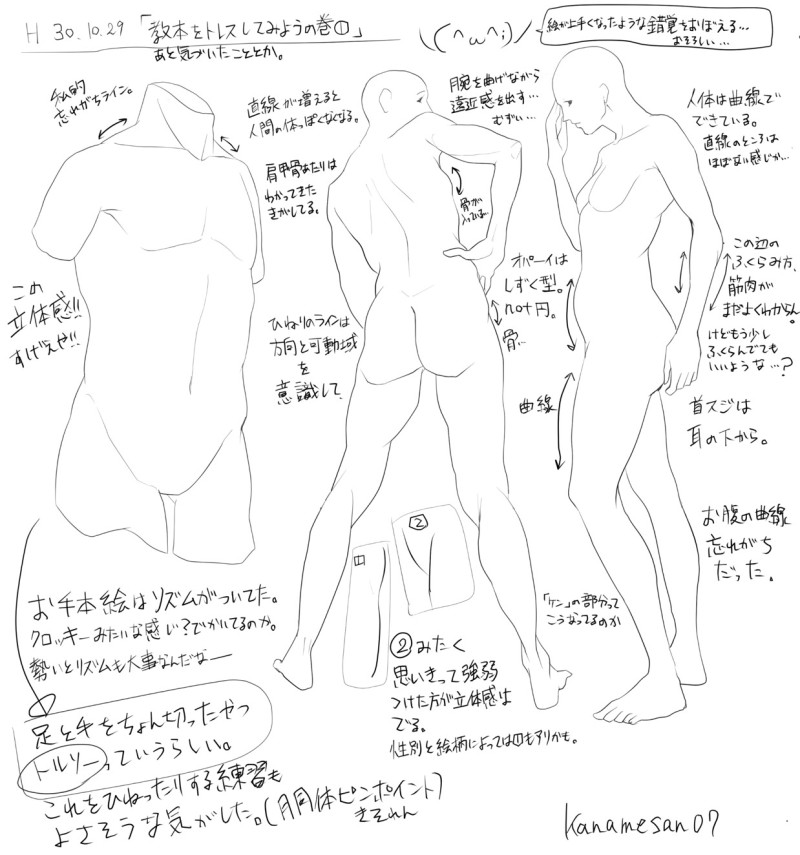 H 30.10.29 「教本をトレスしてみようの巻①」
あと気づいたこととか。
\(^ω^;)/
絵が上手くなったような錯覚をおぼえる…
おそろしい…
私的
忘れがちライン。
直線が増えると
人間の体っぽくなくなる。
肩甲骨あたりは
わかってきた
きがしてる。
腕を曲げながら
遠近感を出す…
むずい…
骨が
入っている…
人体は曲線で
できている。
直線のところは
ほぼない感じか…
この
立体感!!
すげえや!!
ひねりのラインは
方向と可動域
を
意識して
オパーイは
しずく型。
not 円。
骨…
曲線
この辺の
ふくらみ方、
筋肉が
まだよくわからん。
けどもう少し
ふくらんでても
いいような…?
首スジは
耳の下から。
お腹の曲線
忘れがち
だった。
①
②
「ケン」の部分って
こうなってるのか
お手本絵はリズムがついてた。
クロッキーみたいな感じ?でかいてるのか。
勢いとリズムも大事なんだなー
②みたく
思いきって強弱
つけた方が立体感は
でる。
性別と絵柄によっては①もアリかも。
足と手をちょん切ったやつ
トルソーっていうらしい。
これをひねったりする練習も
よさそうな気がした。(胴体ピンポイント)
きそれん
kanamesan07